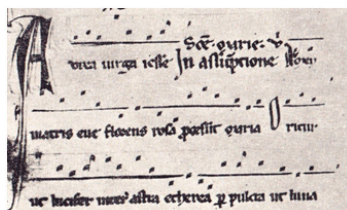 Sc̄e marie
Aurea uirga iesse In assūptione
matris eue florens rosa ꝓcessit maria Oritur
ut lucifer inter astra etherea ꝑ pulcra ut luna